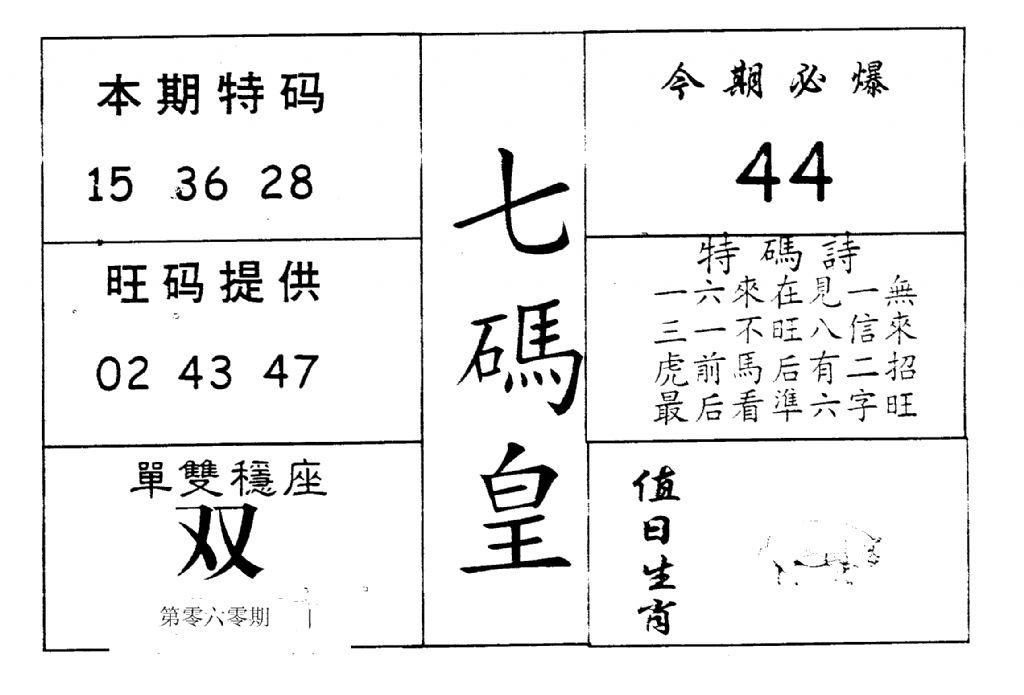 本期特码
15 36 28
旺码提供
02 43 47
單雙穩座
双
第零六零期
七碼皇
今期必爆
44
特碼詩
一六來在見一無
三一不旺八信來
虎前馬后有二招
最后看準六字旺
值日生肖